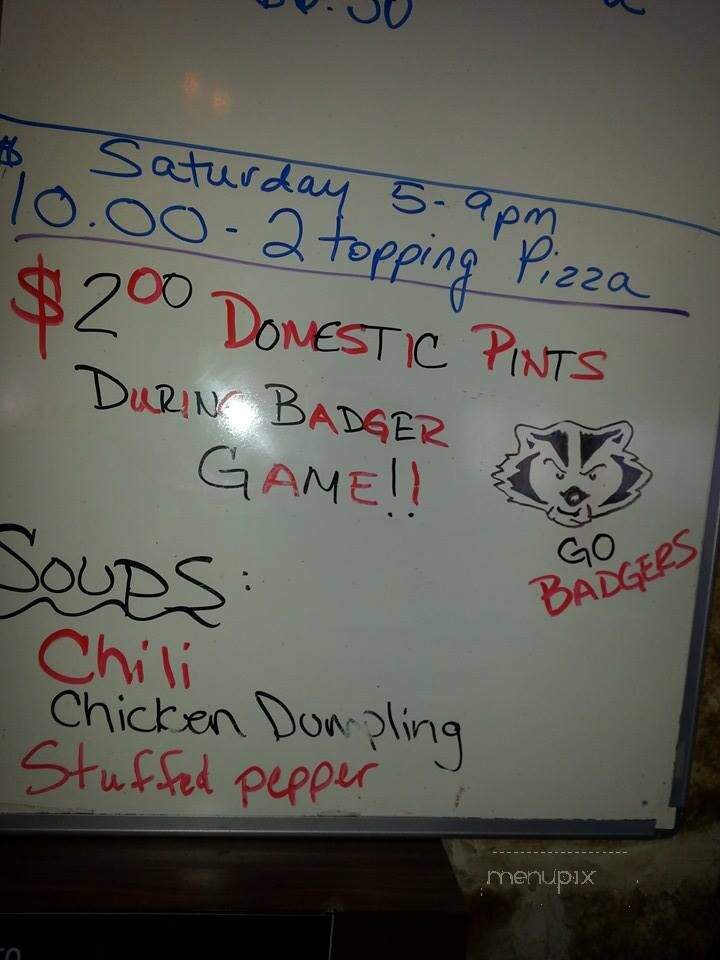 Saturday 5-9pm
$10.00 - 2 topping Pizza
$2.00 Domestic Pints
During Badger
Game!!
Go
Badgers
Soups:
Chili
Chicken Dumpling
Stuffed pepper
menupix